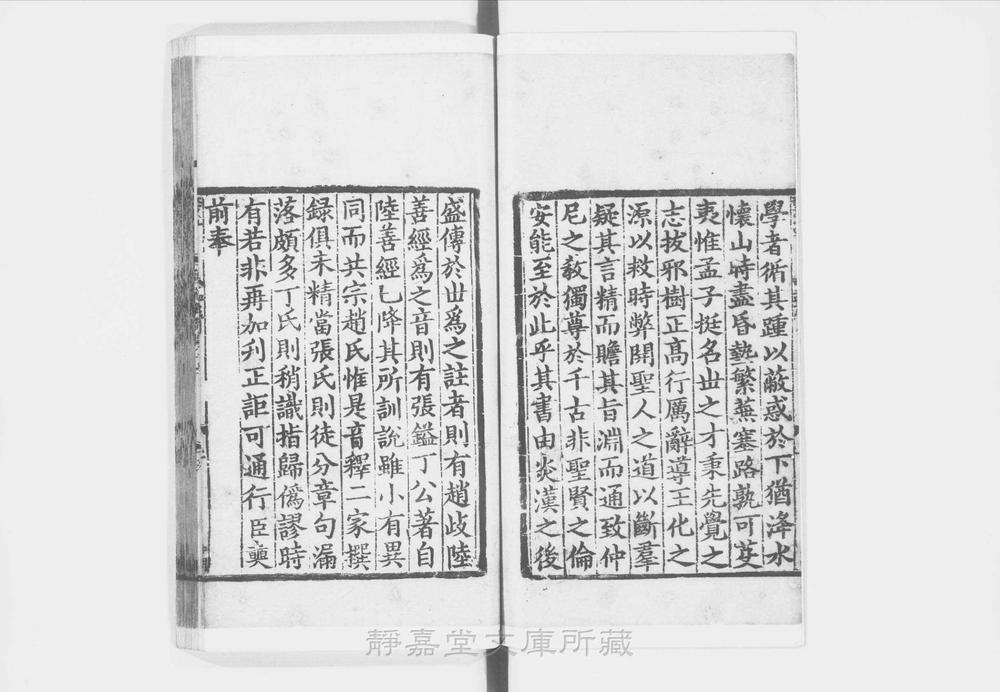 學者循其踵以蔽惑於下猶洚水
懷山時盡昏墊繁蕪塞路孰可芟
夷惟孟子挺名世之才秉先覺之
志拔邪樹正高行厲辭導王化之
源以救時弊開聖人之道以斷羣
疑其言精而贍其旨淵而通致仲
尼之教獨尊於千古非聖賢之倫
安能至於此乎其書由炎漢之後
盛傳於丗爲之註者則有趙歧陸
善經爲之音則有張鎰丁公著自
陸善經已降其所訓說雖小有異
同而共宗趙氏惟是音釋二家撰
録俱未精當張氏則徒分章句漏
落頗多丁氏則稍識指歸僞謬時
有若非再加刋正詎可通行臣奭
前奉
靜嘉堂文庫所藏